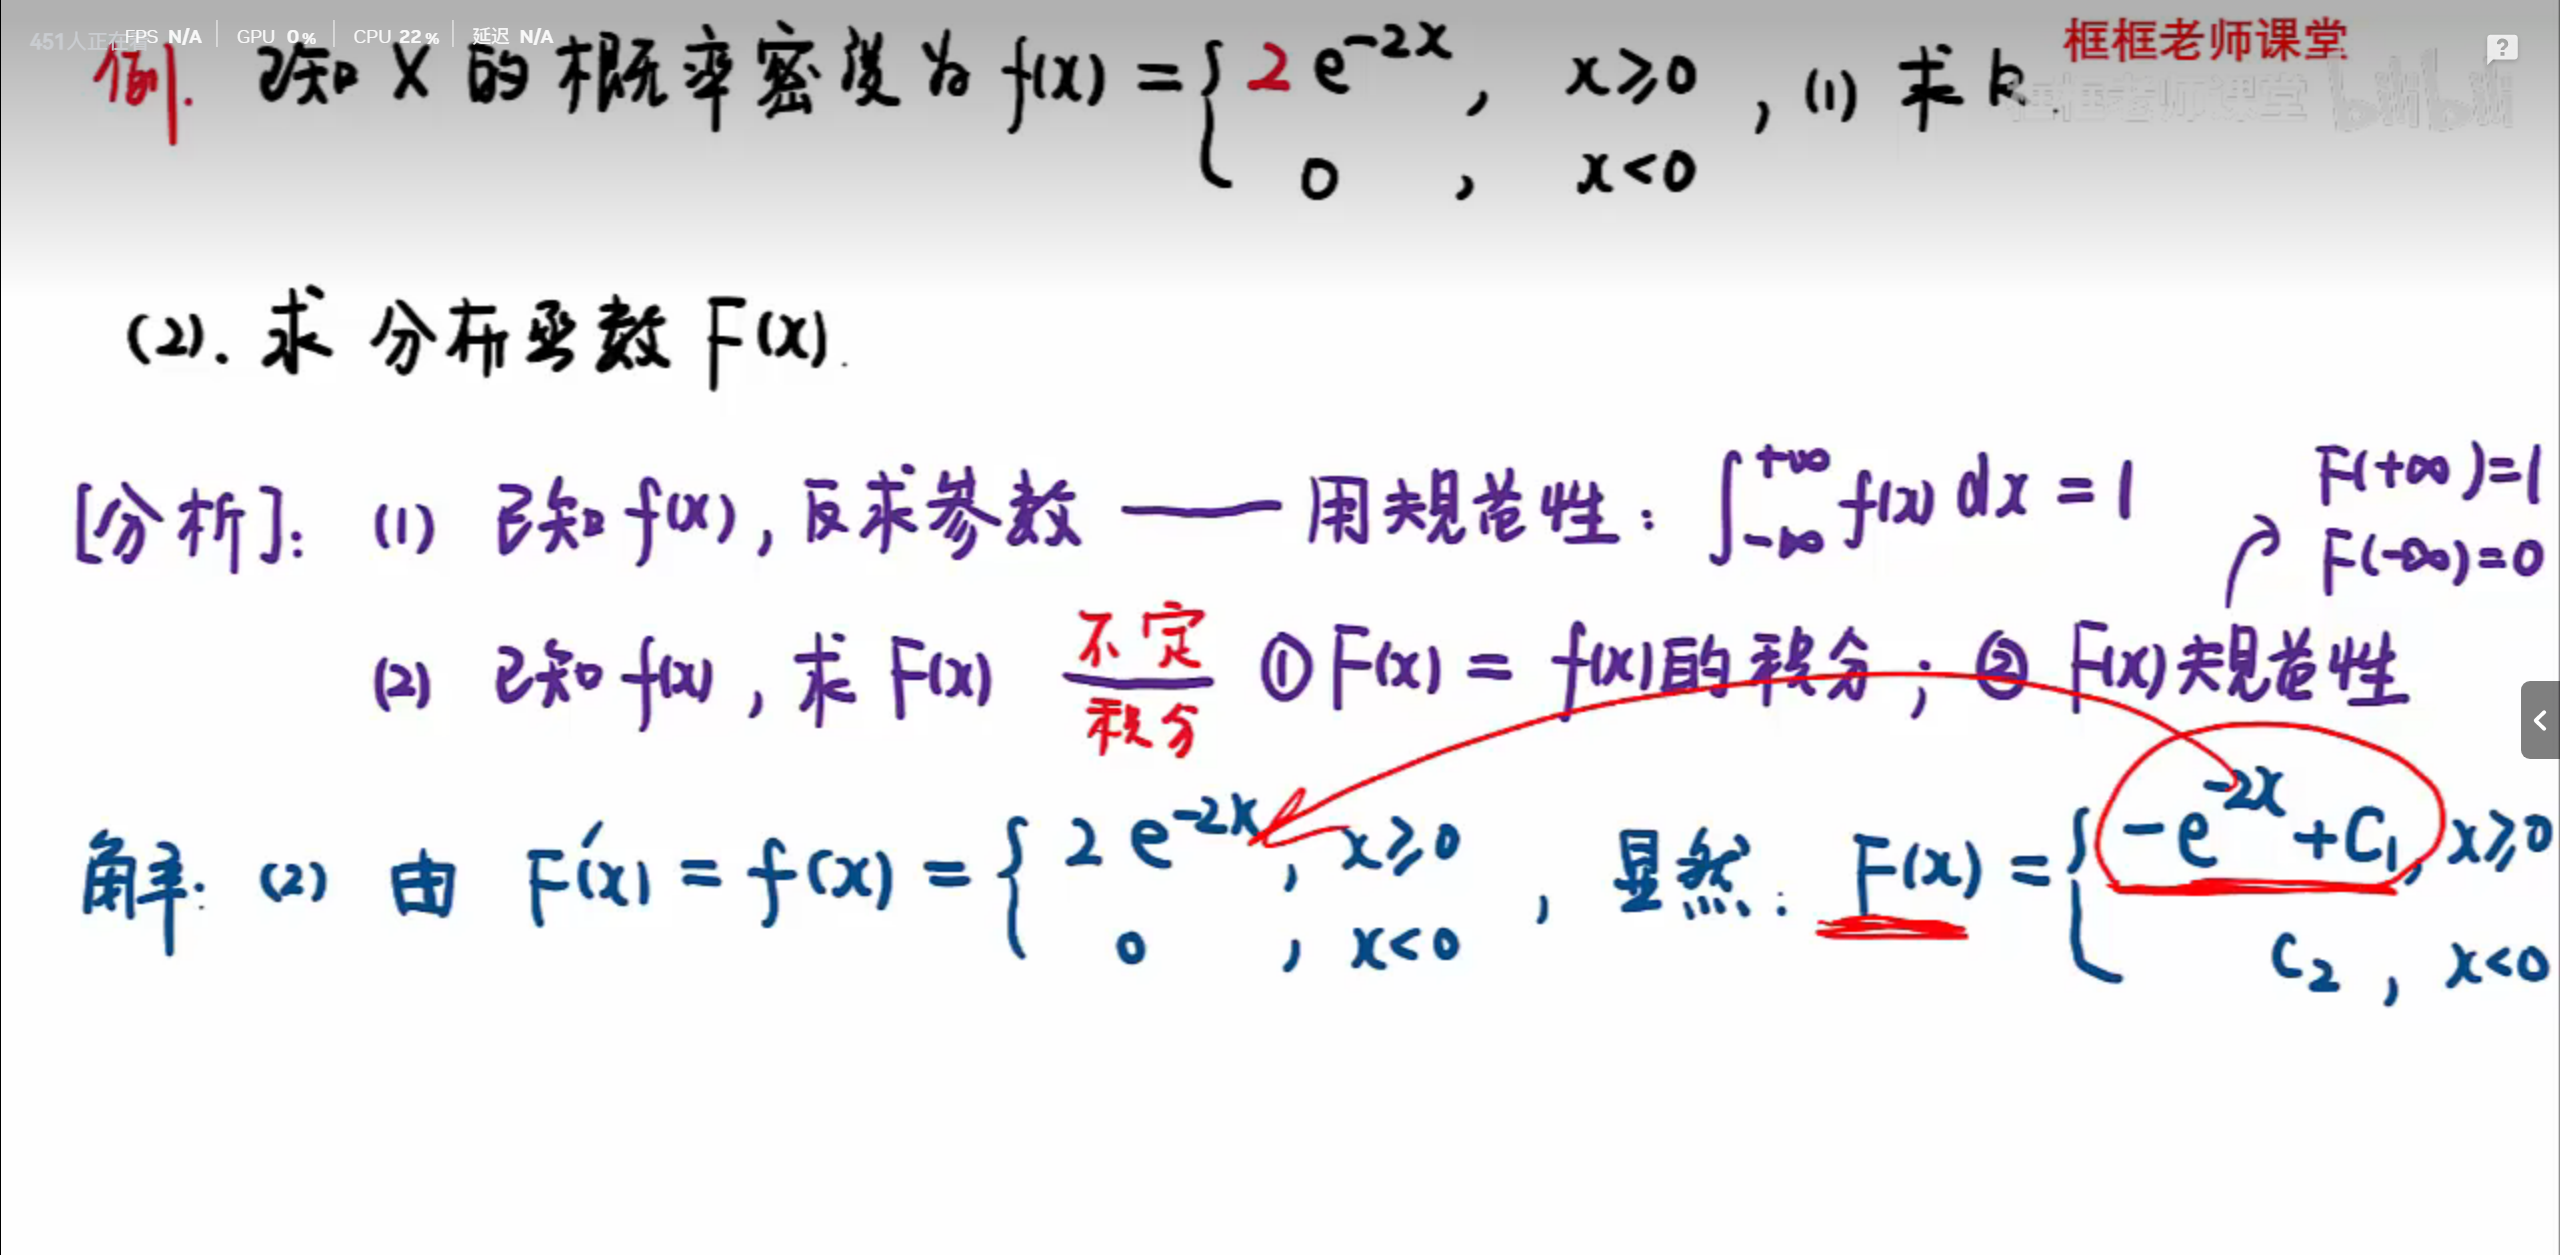 451人正在 FPS N/A GPU 0% CPU 22% 延迟 N/A
框框老师课堂
框框老师课堂 bilibili
例. 已知 X 的概率密度为 f(x) = { 2 e^{-2x}, x≥0 ,(1) 求 k.
0 , x<0
(2). 求 分布函数 F(x).
[分析]: (1) 已知 f(x), 反求参数 —— 用规范性: ∫_{-∞}^{+∞} f(x) dx = 1
F(+∞)=1
F(-∞)=0
(2) 已知 f(x), 求 F(x) 不定积分 ① F(x) = f(x)的积分; ② F(x)规范性
解: (2) 由 F'(x) = f(x) = { 2 e^{-2x}, x≥0 , 显然: F(x) = { -e^{-2x}+C₁, x≥0
0 , x<0 C₂ , x<0